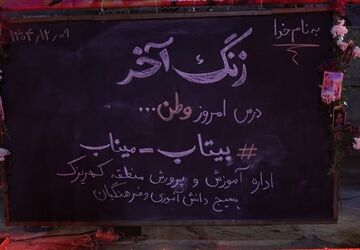 به نام خدا
۱۴۰۴/۱۲/۰۹
زنگ آخر
درس امروز وطن...
# بیتاب - میناب
اداره آموزش و پرورش منطقه کهریزک
بسیج دانش آموزی و فرهنگیان